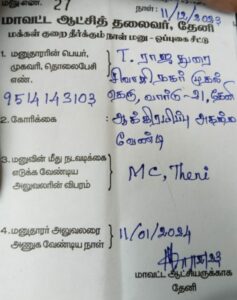 மனு எண். 27
நாள்: 11/12/2023
மாவட்ட ஆட்சித் தலைவர், தேனி
மக்கள் குறை தீர்க்கும் நாள் மனு - ஒப்புகை சீட்டு
1. மனுதாரரின் பெயர், முகவரி, தொலைபேசி எண்.
T. ராஜதுரை
சிவாஜி நகர் முதல்
தெரு, வார்டு-21, தேனி
9514143103
2. கோரிக்கை:
ஆக்கிரமிப்பு அகற்ற
வேண்டி
3. மனுவின் மீது நடவடிக்கை எடுக்க வேண்டிய அலுவலரின் விபரம்
MC, Theni
4. மனுதாரர் அலுவலரை அணுக வேண்டிய நாள்
11/01/2024
மாவட்ட ஆட்சியருக்காக
தேனி